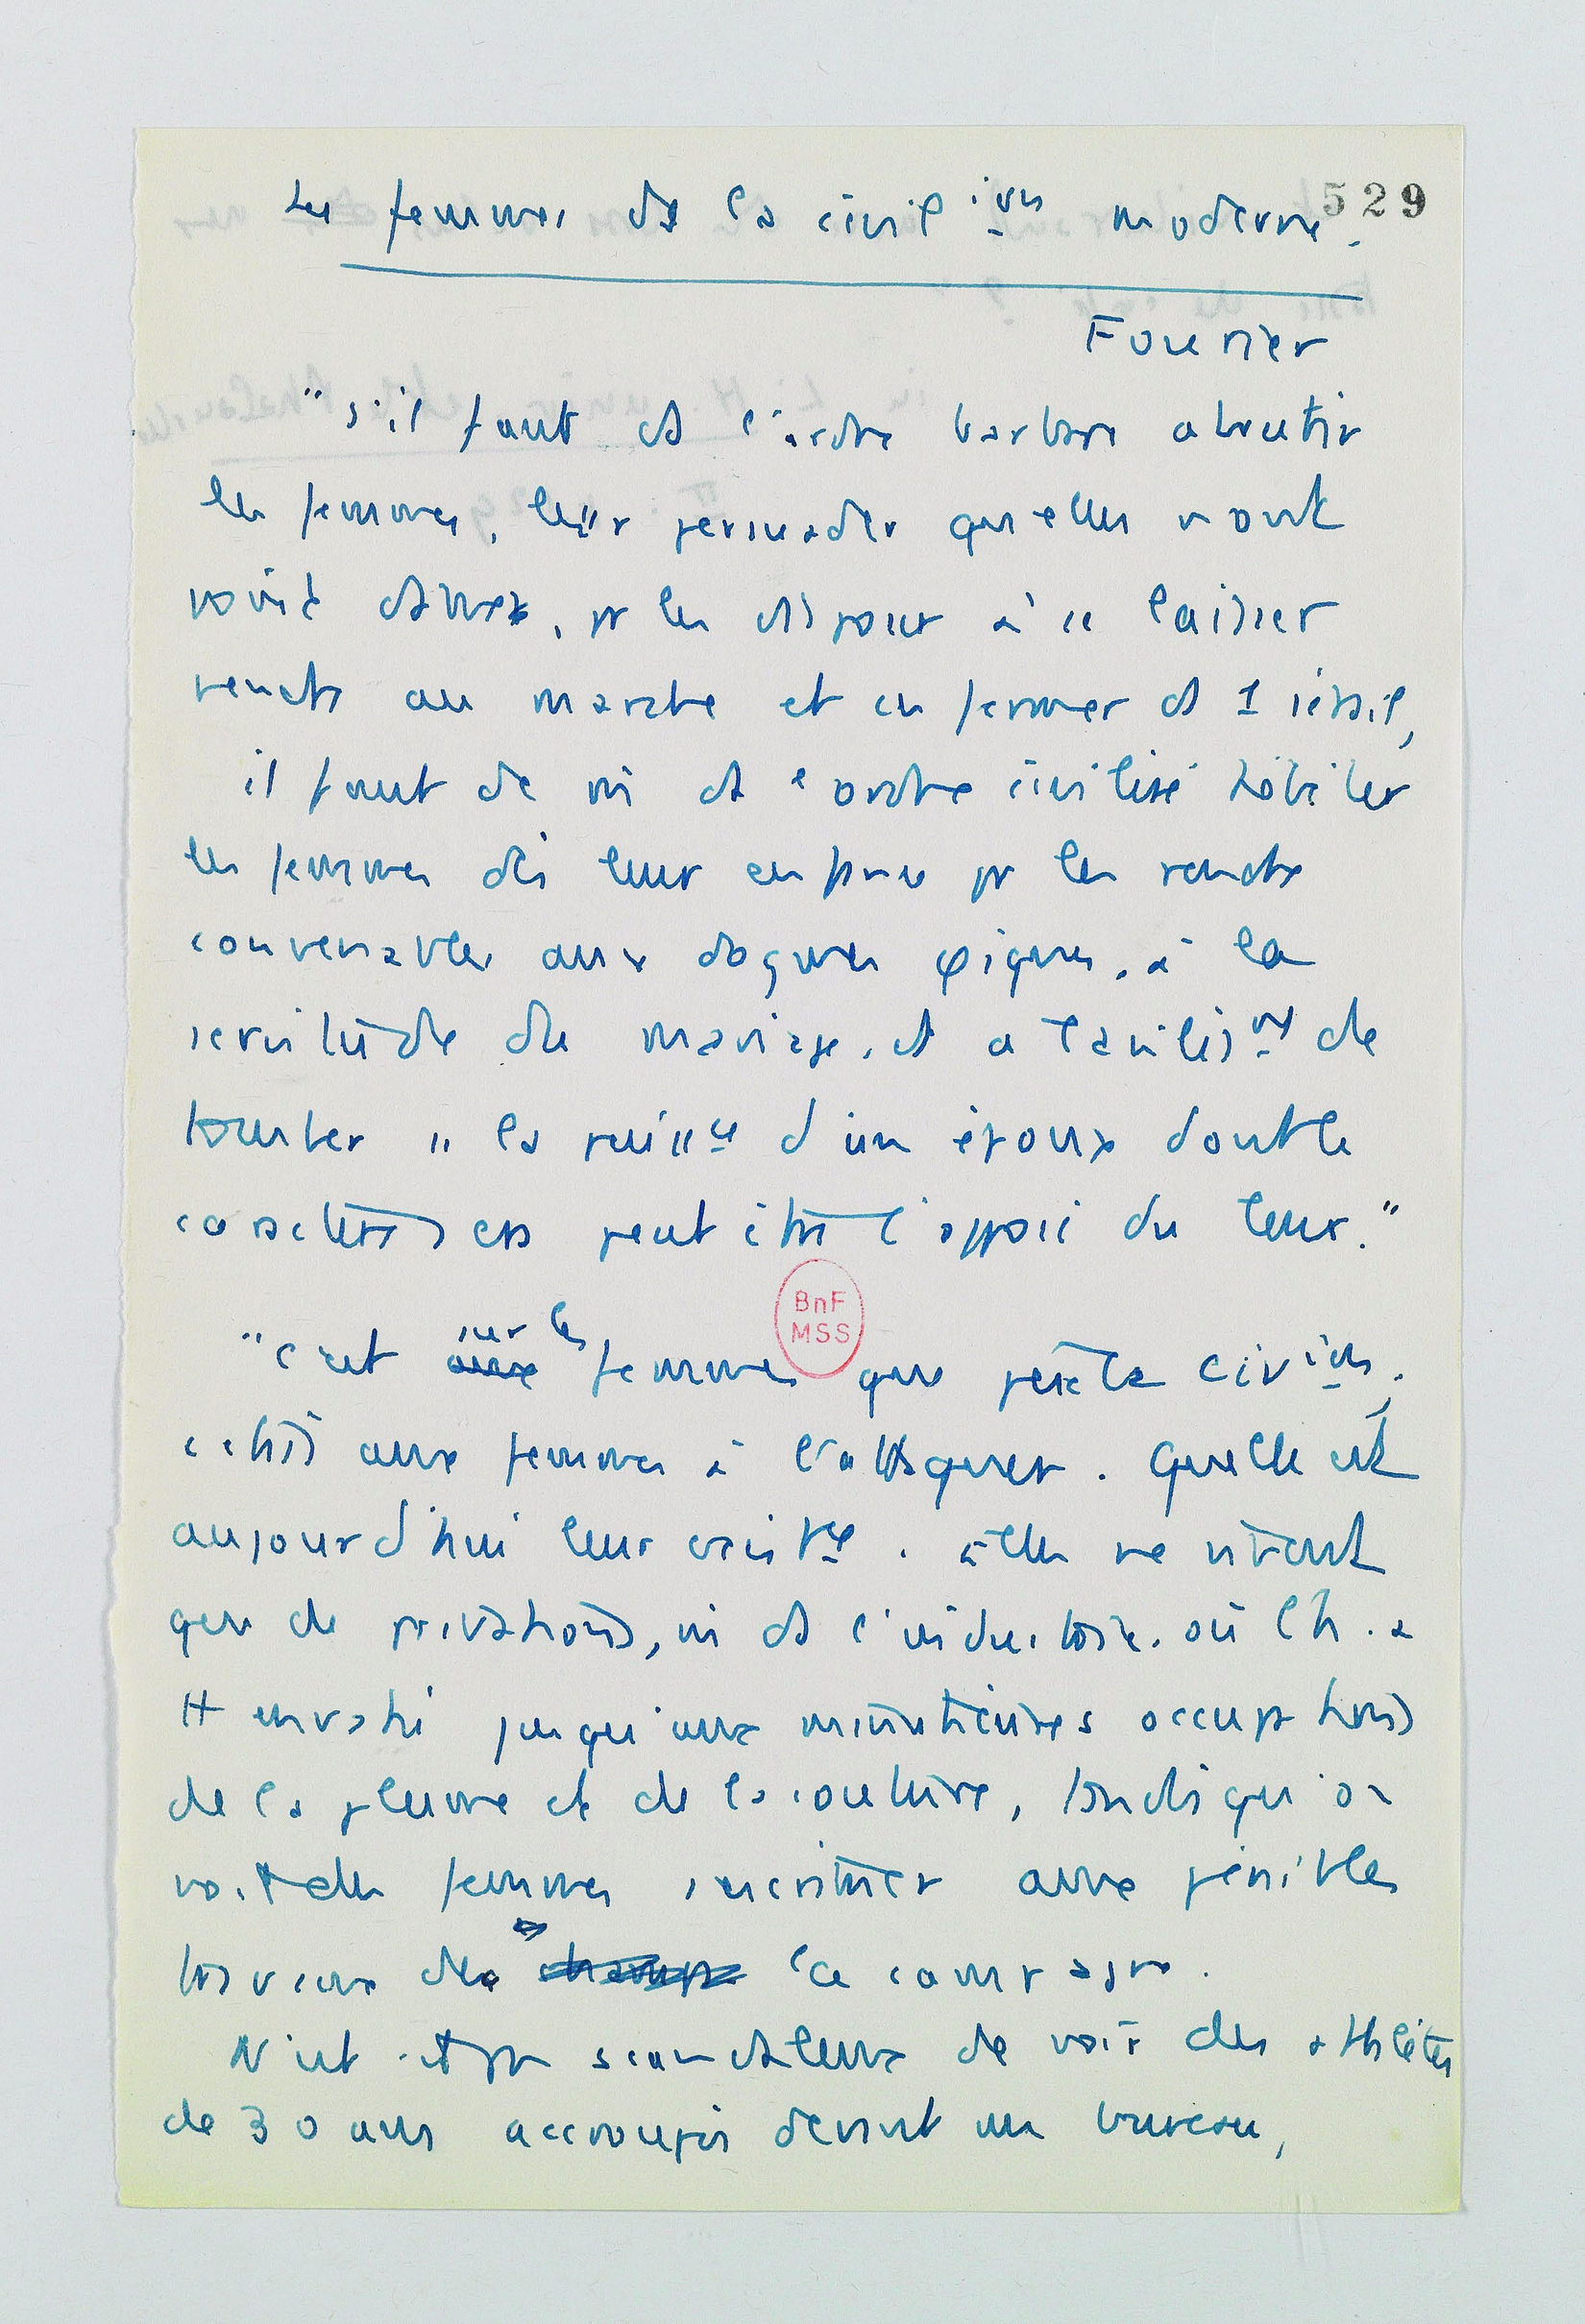 Les femmes ds la civil ion moderne.
529
Fourier
"s'il faut ds l'ordre barbare abrutir
les femmes, leur persuader qu'elles n'ont
point d'âmes, pr les disposer à se laisser
vendre au marché et enfermer ds 1 sérail,
il faut de m ds l'ordre civilisé hébéter
les femmes dès leur enfance pr les rendre
convenables aux dogmes φiques, à la
servitude du mariage, et a l'avilisst de
tomber ss la puissce d'un époux dont le
caractère sera peut être l'opposé du leur."
BnF
MSS
"c'est sur les femmes que pèse la civion,
c'était aux femmes à l'attaquer. Quelle est
aujourd'hui leur exist ce. elles ne vivent
que de privations, m ds l'industrie. où l'h. a
tt envahi jusqu'aux minutieuses occupations
de la plume et de la couture, tandis qu'on
voit des femmes s'escrimer aux pénibles
travaux de la campagne.
N'est-il pas scandaleux de voir des athlètes
de 30 ans accroupis devant un bureau,